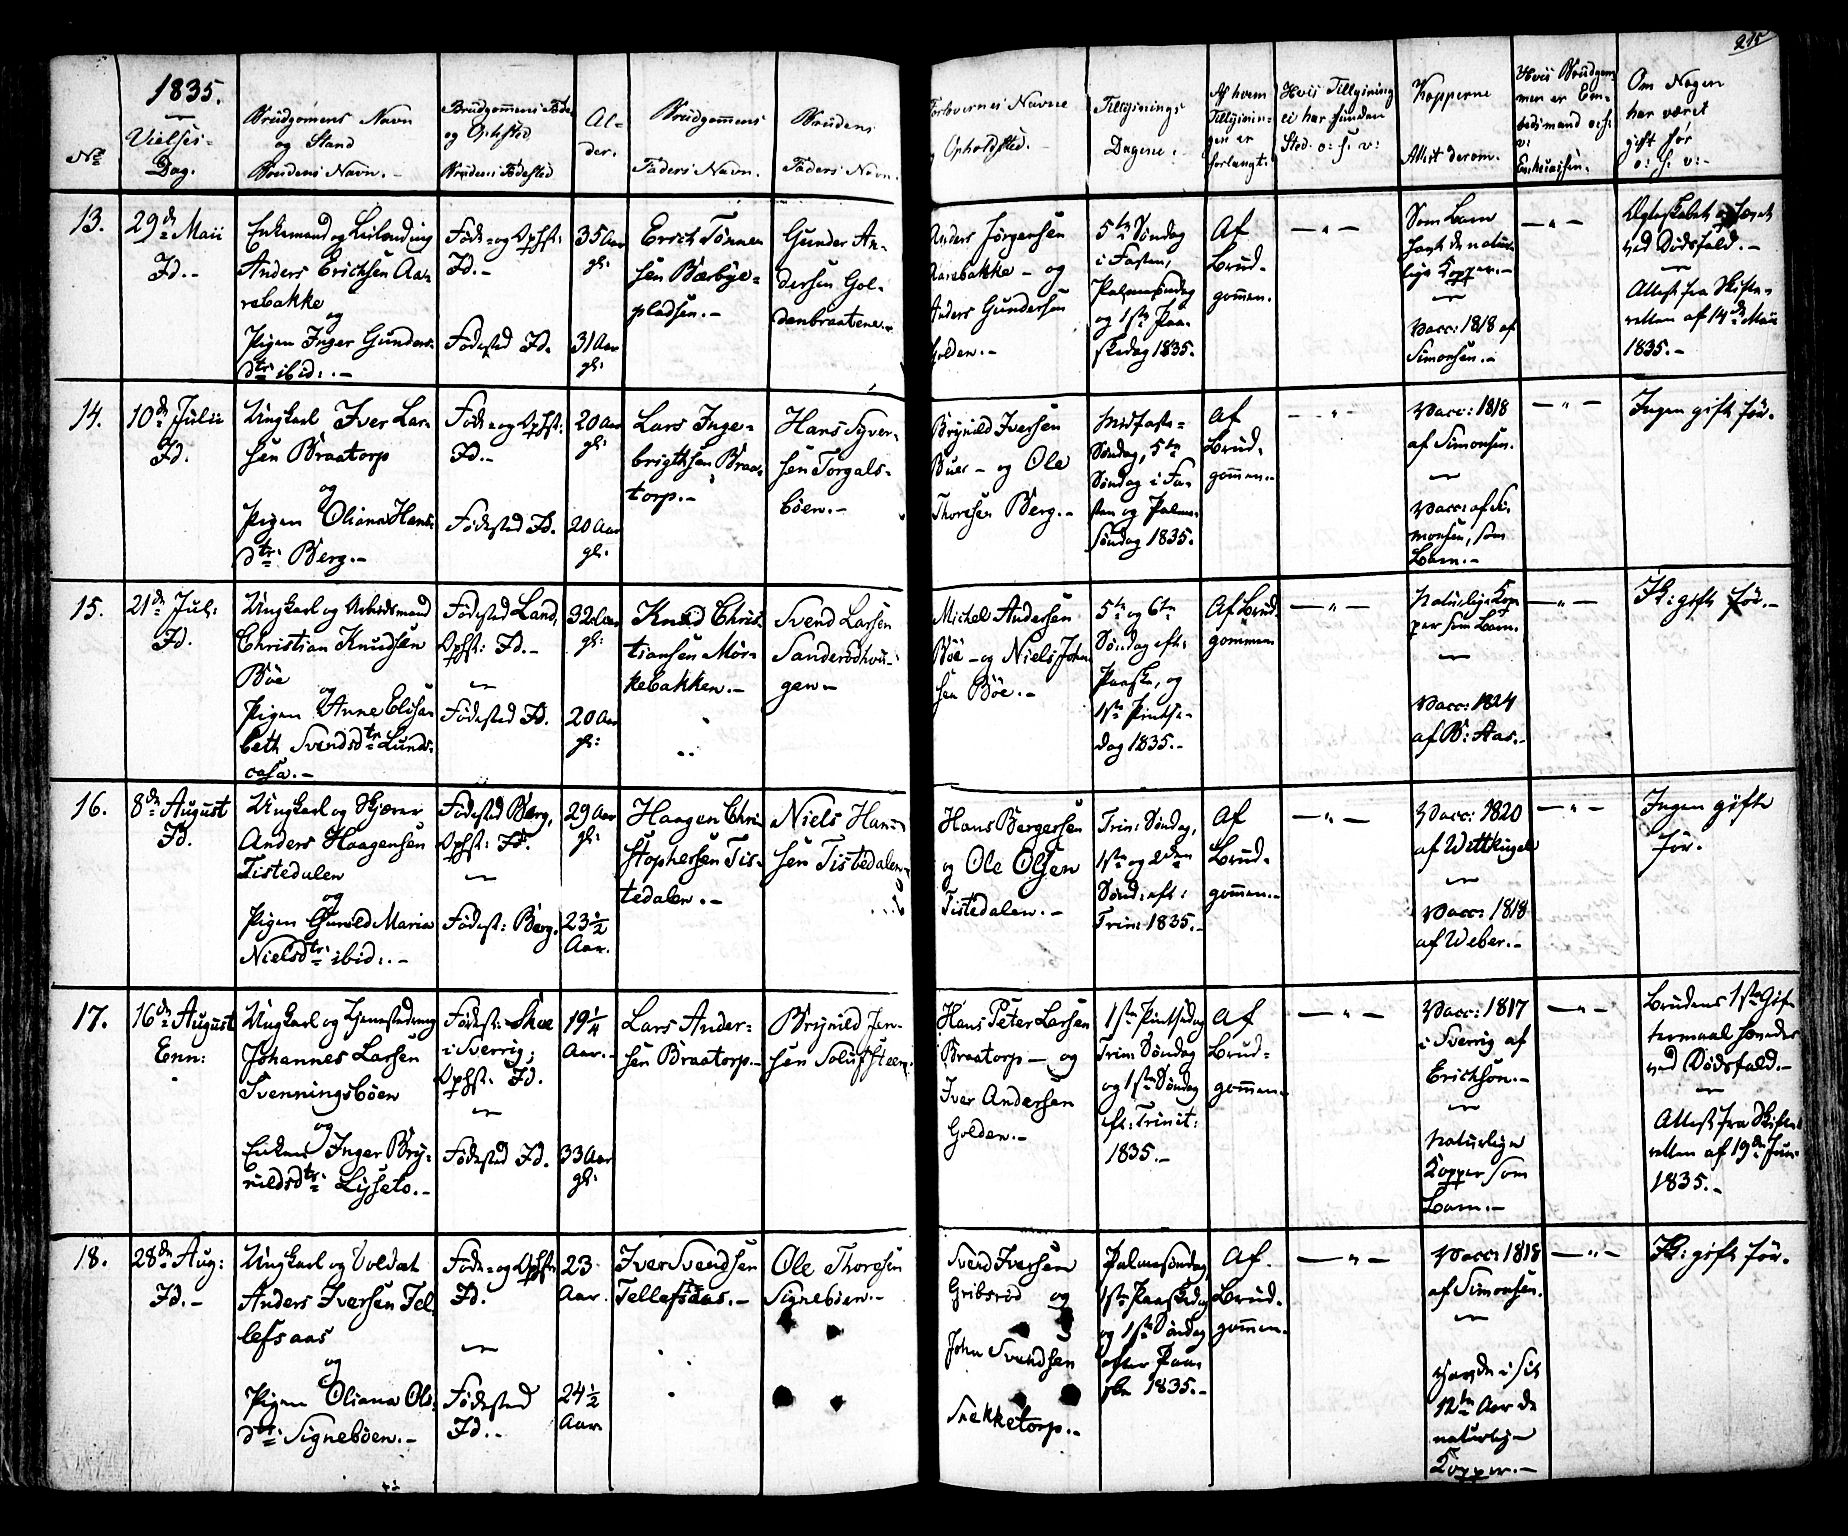 215
1835.
No
Vielses-
Dag.
Brudgomens Navn
og Stand
Brudens Navn.-
Brudgommens Føde
og Ophsted
Brudens Fødested
Al-
der.
Brudgommens
Faders Navn.
Brudens
Faders Navn.
Forlovernes Navne
g Opholdsted.-
Tillysnings
Dagene.
Af hvem
Tillysnin-
gen er
forlangt.
Hvis Tillysning
ei har funden
Sted. o: s: v:
Kopperne
Attest derom.
Hvis Brudgom-
men er Em-
bedsmand o:s:
v:
Om Nogen
har været
gift før
o: s: v:-
13.
29de Maii
Id.-
Enkemand og Leilænding
Anders Erichsen Aa-
rebakke
og
Pigen Inger Gunders-
dtr ibid:.-
Føde- og Ophst:
Id.-
Fødested Id.
35 Aar
gl:
31 Aar
gl:
Erich Tønne-
sen Bæbye-
pladsen.-
Gunder An-
dersen Gol-
denbraatene.-
Anders Jørgensen
Aarebakke - og
Anders Gundersen
Golden.-
5te Søndag
i Fasten,
Palmesøndag
og 1ste Paa-
skedag 1835.
Af
Brud-
gommen.
- " -
Som Barn
havt de natur-
lige Kopper.-
Vacc: 1818 af
Simonsen.-
- " -
Ægteskabet hævet
ved Dødsfald.-
Attest fra Skifte-
retten af 14de Maii
1835.-
14.
10de Julii
Id.
Ungkarl Iver Lar-
sen Braatorp
og
Pigen Oliana Hans-
dtr: Berg.-
Føde- og Ophst:
Id.-
Fødested Id.
20 Aar
gl:
20 Aar
gl:
Lars Inge-
brigtsen Braa-
torp.-
Hans Syver-
sen Torgals-
bøen.-
Brynild Iversen
Buer - og Ole
Thoresen Berg.-
Midfaste-
Søndag, 5te
Søndag i Fa-
sten og Palme-
Søndag 1835.
Af
Brud-
gommen.-
- " -
Vacc: 1818
af Simonsen.
Vacc: af Si-
monsen, som
Barn.-
- " -
Ingen gift før.-
15.
21de Jul:
Id.
Ungkarl og Arbeidsmand
Christian Knudsen
Bøe
og
Pigen Anne Elisa-
beth Svendsdtr Lunds-
aasa.-
Fødested Land,
Ophst: Id.-
Fødested Id.
32 Aar
gl:
20 Aar
gl:
Knud Chris-
tiansen Mør-
kebakken.-
Svend Larsen
Sanderødhou-
gen.-
Michel Andersen
Bøe - og Niels John-
sen Bøe.-
5te og 6te
Søndag eft:
Paaske, og
1ste Pintse-
dag 1835.-
Af Brud-
gommen
- " -
Naturlige Kop-
per som Barn.
Vacc: 1824
af B: Aas.-
- " -
Ik: gift før.-
16.
8de August
Id.
Ungkarl og Skjærer
Anders Haagensen
Tistedalen
og
Pigen Gunild Maria
Nielsdtr: ibid:.-
Fødested Berg,
Ophst: Id.
Fødest: Berg.
29 Aar
gl:
23 1/2
Aar.
Haagen Chri-
stophersen Tis-
tedalen.-
Niels Han-
sen Tistedalen.-
Hans Bergersen
og Ole Olsen
Tistedalen.-
Trin: Søndag,
1ste og 2den
Sønd: eft:
Trin: 1835.-
Af
Brud-
gommen.-
- " -
Vacc: 1820
af Wittkugel
Vacc: 1818
af Weber.-
- " -
Ingen gifte
før.
17.
16de August
Enn:
Ungkarl og Tjenestedreng
Johannes Larsen
Svenningsbøen
og
Enken Inger Bry-
nildsdtr: Lysets.-
Fødest: Skee
i Sverrig;
Ophst: Id.
Fødested Id.
19 1/4
Aar.-
33 Aar
gl:
Lars Ander-
sen Braatorp.-
Brynild Jen-
sen Solufsteen.
Hans Peter Larsen
Braatorp - og
Iver Andersen
Golden.-
1ste Pintsedag
Trin: Søndag
og 1ste Søndag
eft: Trinit:
1835.-
Af
Brud-
gommen.-
- " -
Vacc: 1817
i Sverrig af
Erickson.-
Naturlige
Kopper som
Barn.-
- " -
Brudens 1ste Gif-
termaal hævdes
ved Dødsfald.-
Attest fra Skifte-
retten af 19de Jun:
1835.-
18.
28de Aug:
Id.-
Ungkarl og Soldat
Anders Iversen Tel-
lefsaas
og
Pigen Oliana Ols-
dtr: Signebøen.-
Føde- og Ophst:
Id.
Fødested
Id.-
23
Aar.
24 1/2
Aar.
Iver Svendsen
Tellefsaas.-
Ole Thoresen
Signebøen.-
Svend Iversen
Gribsrød og
John Svendsen
Snekketorp.-
Palmesøndag,
1ste Paaskedag
og 1ste Søndag
efter Paa-
ske 1835.-
Af
Brud-
gommen.
- " -
Vacc: 1818
af Simonsen.
Havde i sit
12te Aar de
naturlige
Kopper.-
- " -
Ik: gift før.